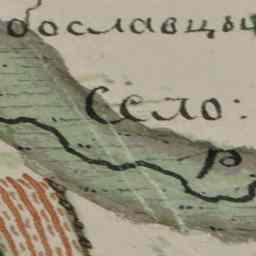 ославцы
Село:
Р